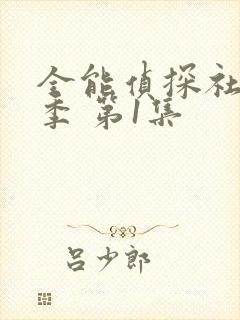 全能偵探社
季 第1集
呂少郎